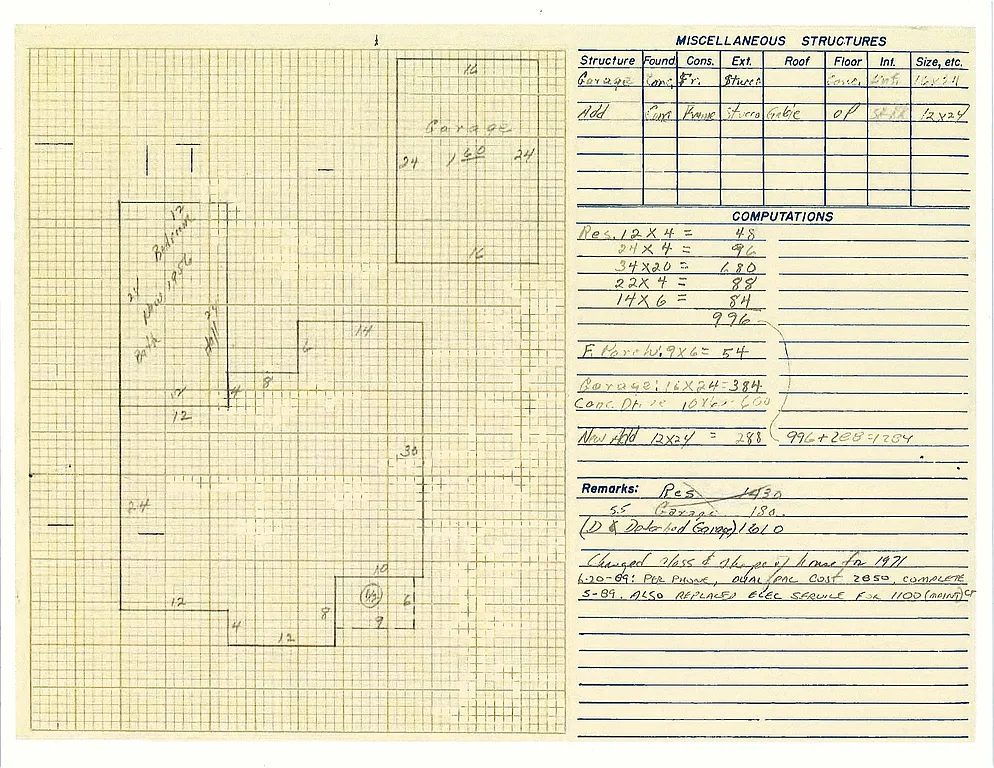 16
Garage
24 1 60 24
16
12
Bedroom
New 1956
24
24
Bath
Hall
12
4
12
8
6
14
30
24
12
4
12
8
10
6
9
MISCELLANEOUS STRUCTURES
Structure Found. Cons. Ext. Roof Floor Int. Size, etc.
Garage Conc. Fr. Stucco Conc. Unf. 16x24
Add Conc Frame Stucco Gable OP 12x24
COMPUTATIONS
Res. 12 X 4 = 48
24 X 4 = 96
34X20 = 680
22X4 = 88
14X6 = 84
996
F. Porch: 9X6= 54
Garage: 16X24=384
Conc. Drive 10X60=600
New Add 12X24 = 288 996+288=1284
Remarks: Res 1430
55 Garage 180.
(D & Detached Garage) 1610
Changed class & shape of house for 1971
6-20-89: PER PHONE, DUAL PAC COST 2850, COMPLETE
5-89. ALSO REPLACED ELEC SERVICE FOR 1100 (MAINT)